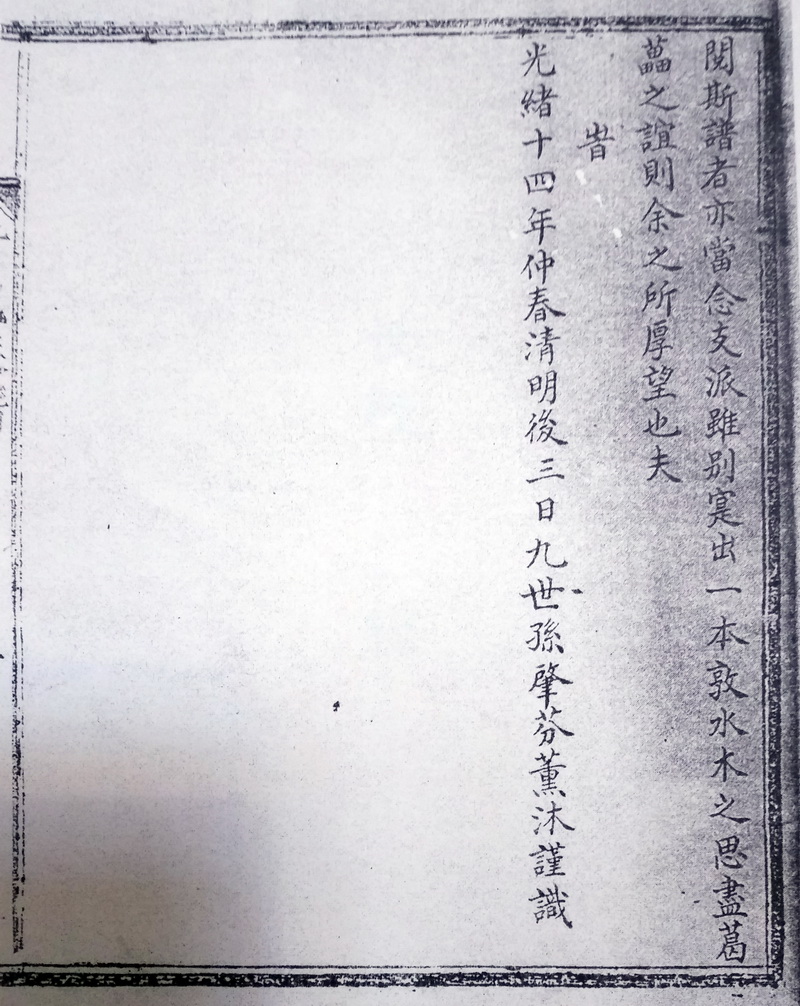 閱斯譜者亦當念支派雖別寔出一本敦水木之思盡葛
藟之誼則余之所厚望也夫
旹
光緒十四年仲春清明後三日九世孫肇芬薰沐謹識